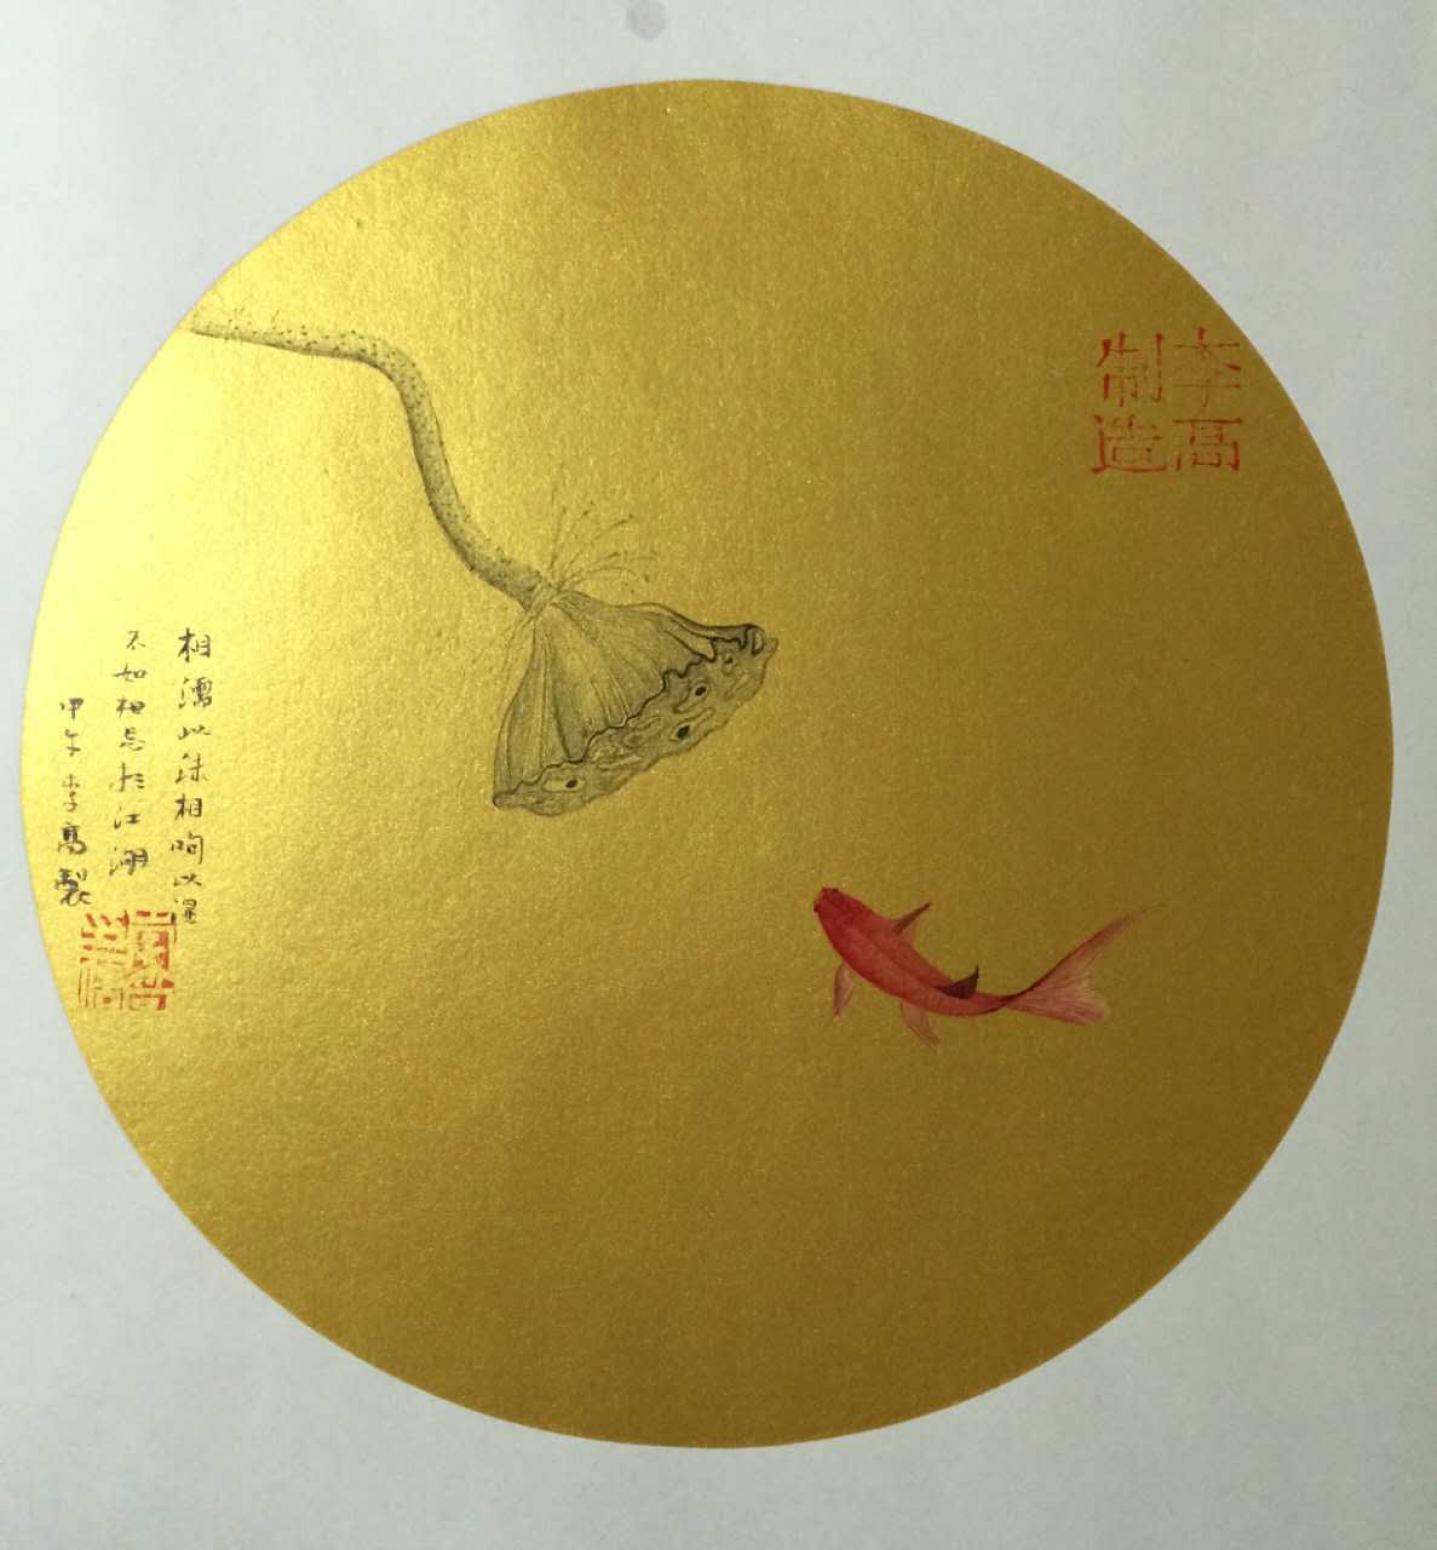 李髙
制造
相濡以沫相呴以湿
不如相忘於江湖
甲午李髙製